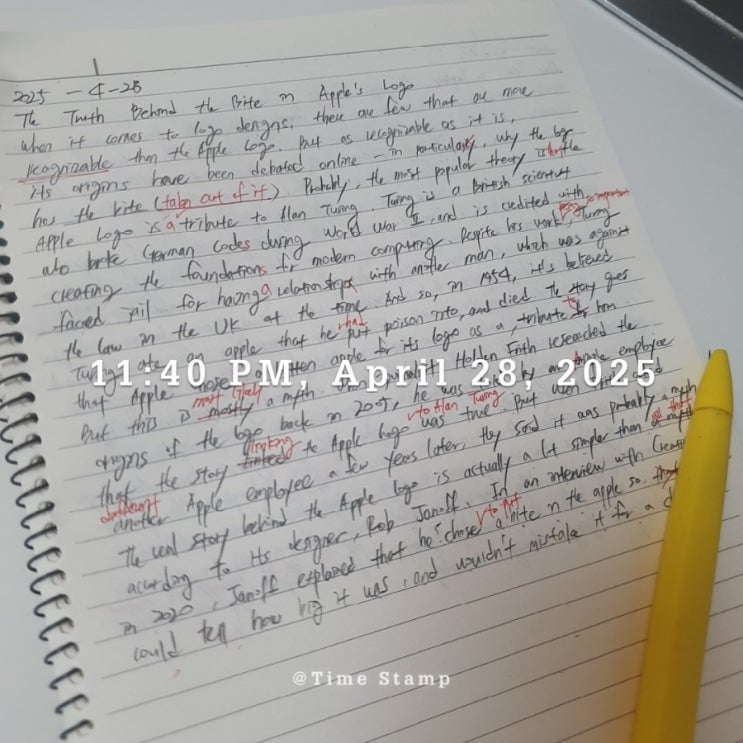 2025 - 4 - 28
The Truth Behind the Bite in Apple's Logo
When it comes to logo designs, there are few that are more
recognizable than the Apple Logo. But as recognizable as it is,
its origins have been debated online - in particular, why the logo
has the bite (taken out of it). Probably, the most popular theory is that the
Apple Logo is a tribute to Alan Turing. Turing is a British scientist
who broke German codes during World War II, and is credited with
creating the foundations for modern computing. Despite his work, Turing
faced jail for having a relationship with another man, which was against
the law in the UK at the time. And so, in 1954, it's believed
Turing ate an apple that he put poison into, and died. The story goes
that Apple chose a bitten apple for its logo as a tribute to him.
But this is mostly a myth. When Holden Frith researched the
most likely
origins of the logo back in 2005, he was by an Apple employee
that the story linking the Apple Logo to Alan Turing was true. But when
different another Apple employee a few years later, they said it was probably a myth
The real story behind the Apple logo is actually a lot simpler than
according to its designer, Rob Janoff. In an interview with
in 2020, Janoff explained that he chose to put a bite in the apple so
could tell how big it was, and wouldn't mistake it for a
11:40 PM, April 28, 2025
@Time Stamp